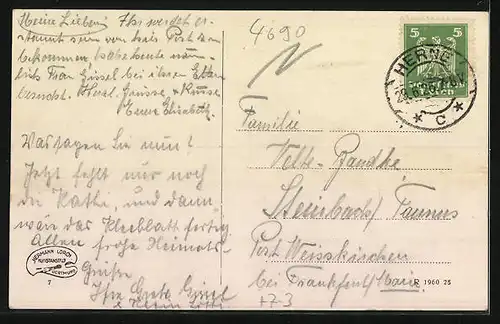 Meine Lieben! Ihr werdet er-
staunt sein von hier Post zu
bekommen. habe heute näm-
lich Frau Gissel bei ihren Eltern
besucht. Herzl. Grüsse & Küsse
Eurer Elisabeth.
Was sagen Sie nun?
Jetzt fehlt nur noch
die Käthi, und dann
wär das Kleeblatt fertig
Allen frohe Heimats-
Grüsse
Ihre Greta Gissel
4690
5 5
HERNE
* C *
Familie
Velte-Bandke
Steinbach/Taunus
Post Weisskirchen
bei Frankfurt/Main
+7-3
HERMANN LORCH
KUNSTANSTALT
DORTMUND
7
R 1960 25